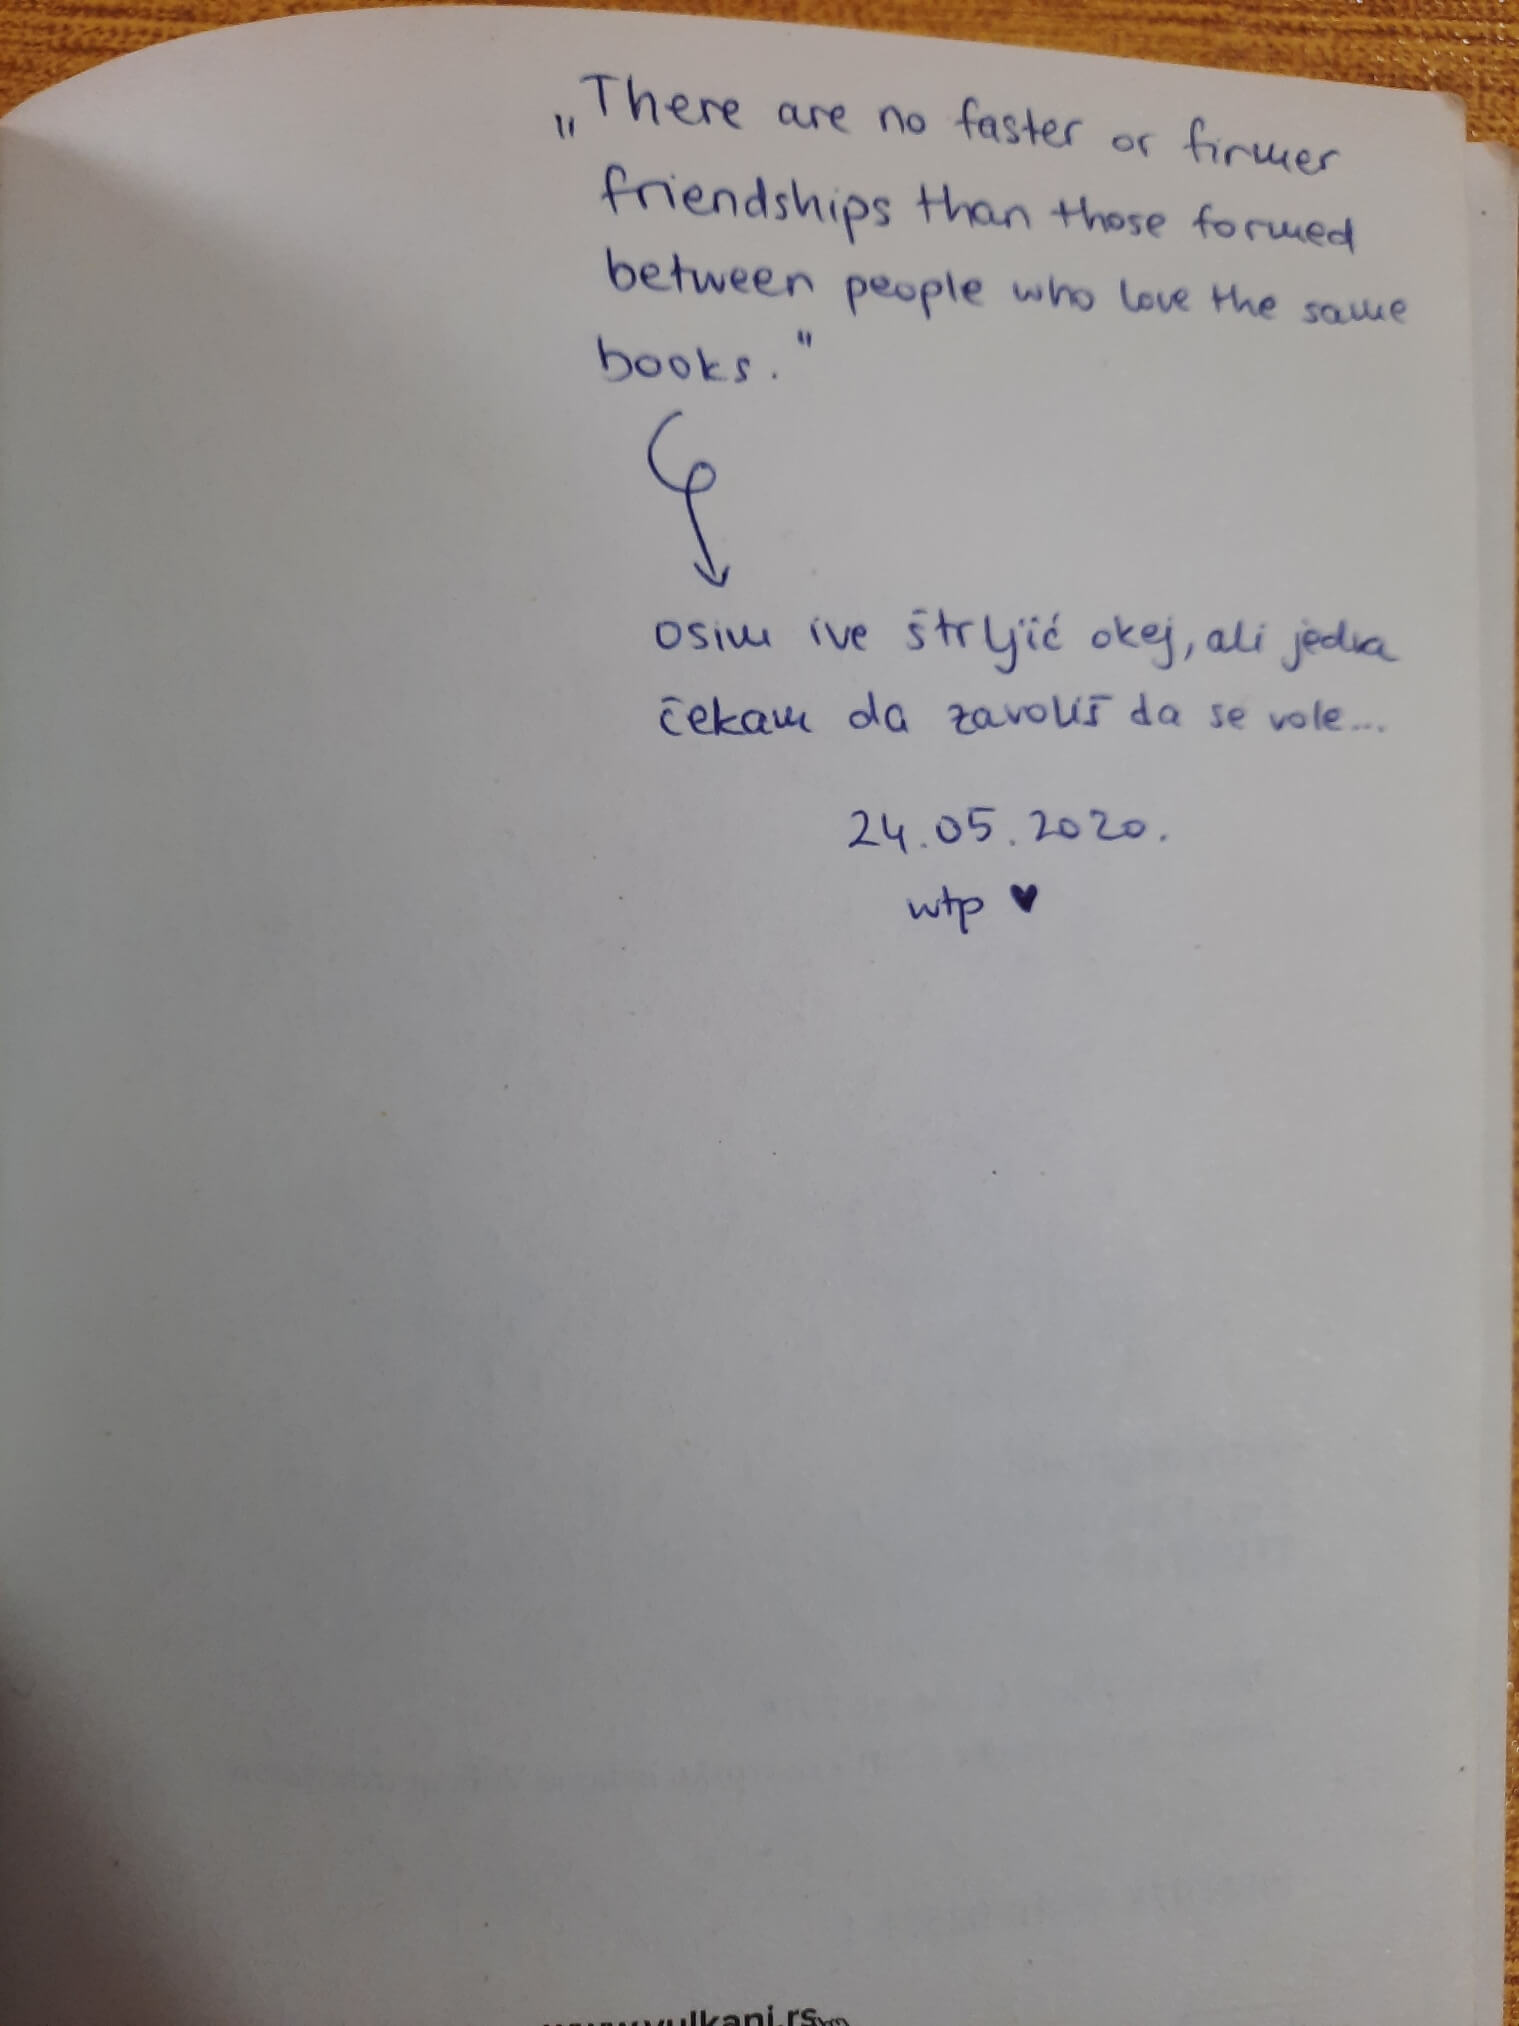 „There are no faster or firmer
friendships than those formed
between people who love the same
books."
osim ive štrljić okej, ali jedva
čekam da zavoliš da se vole...
24.05.2020.
wtp ♥
www.vulkani.rs